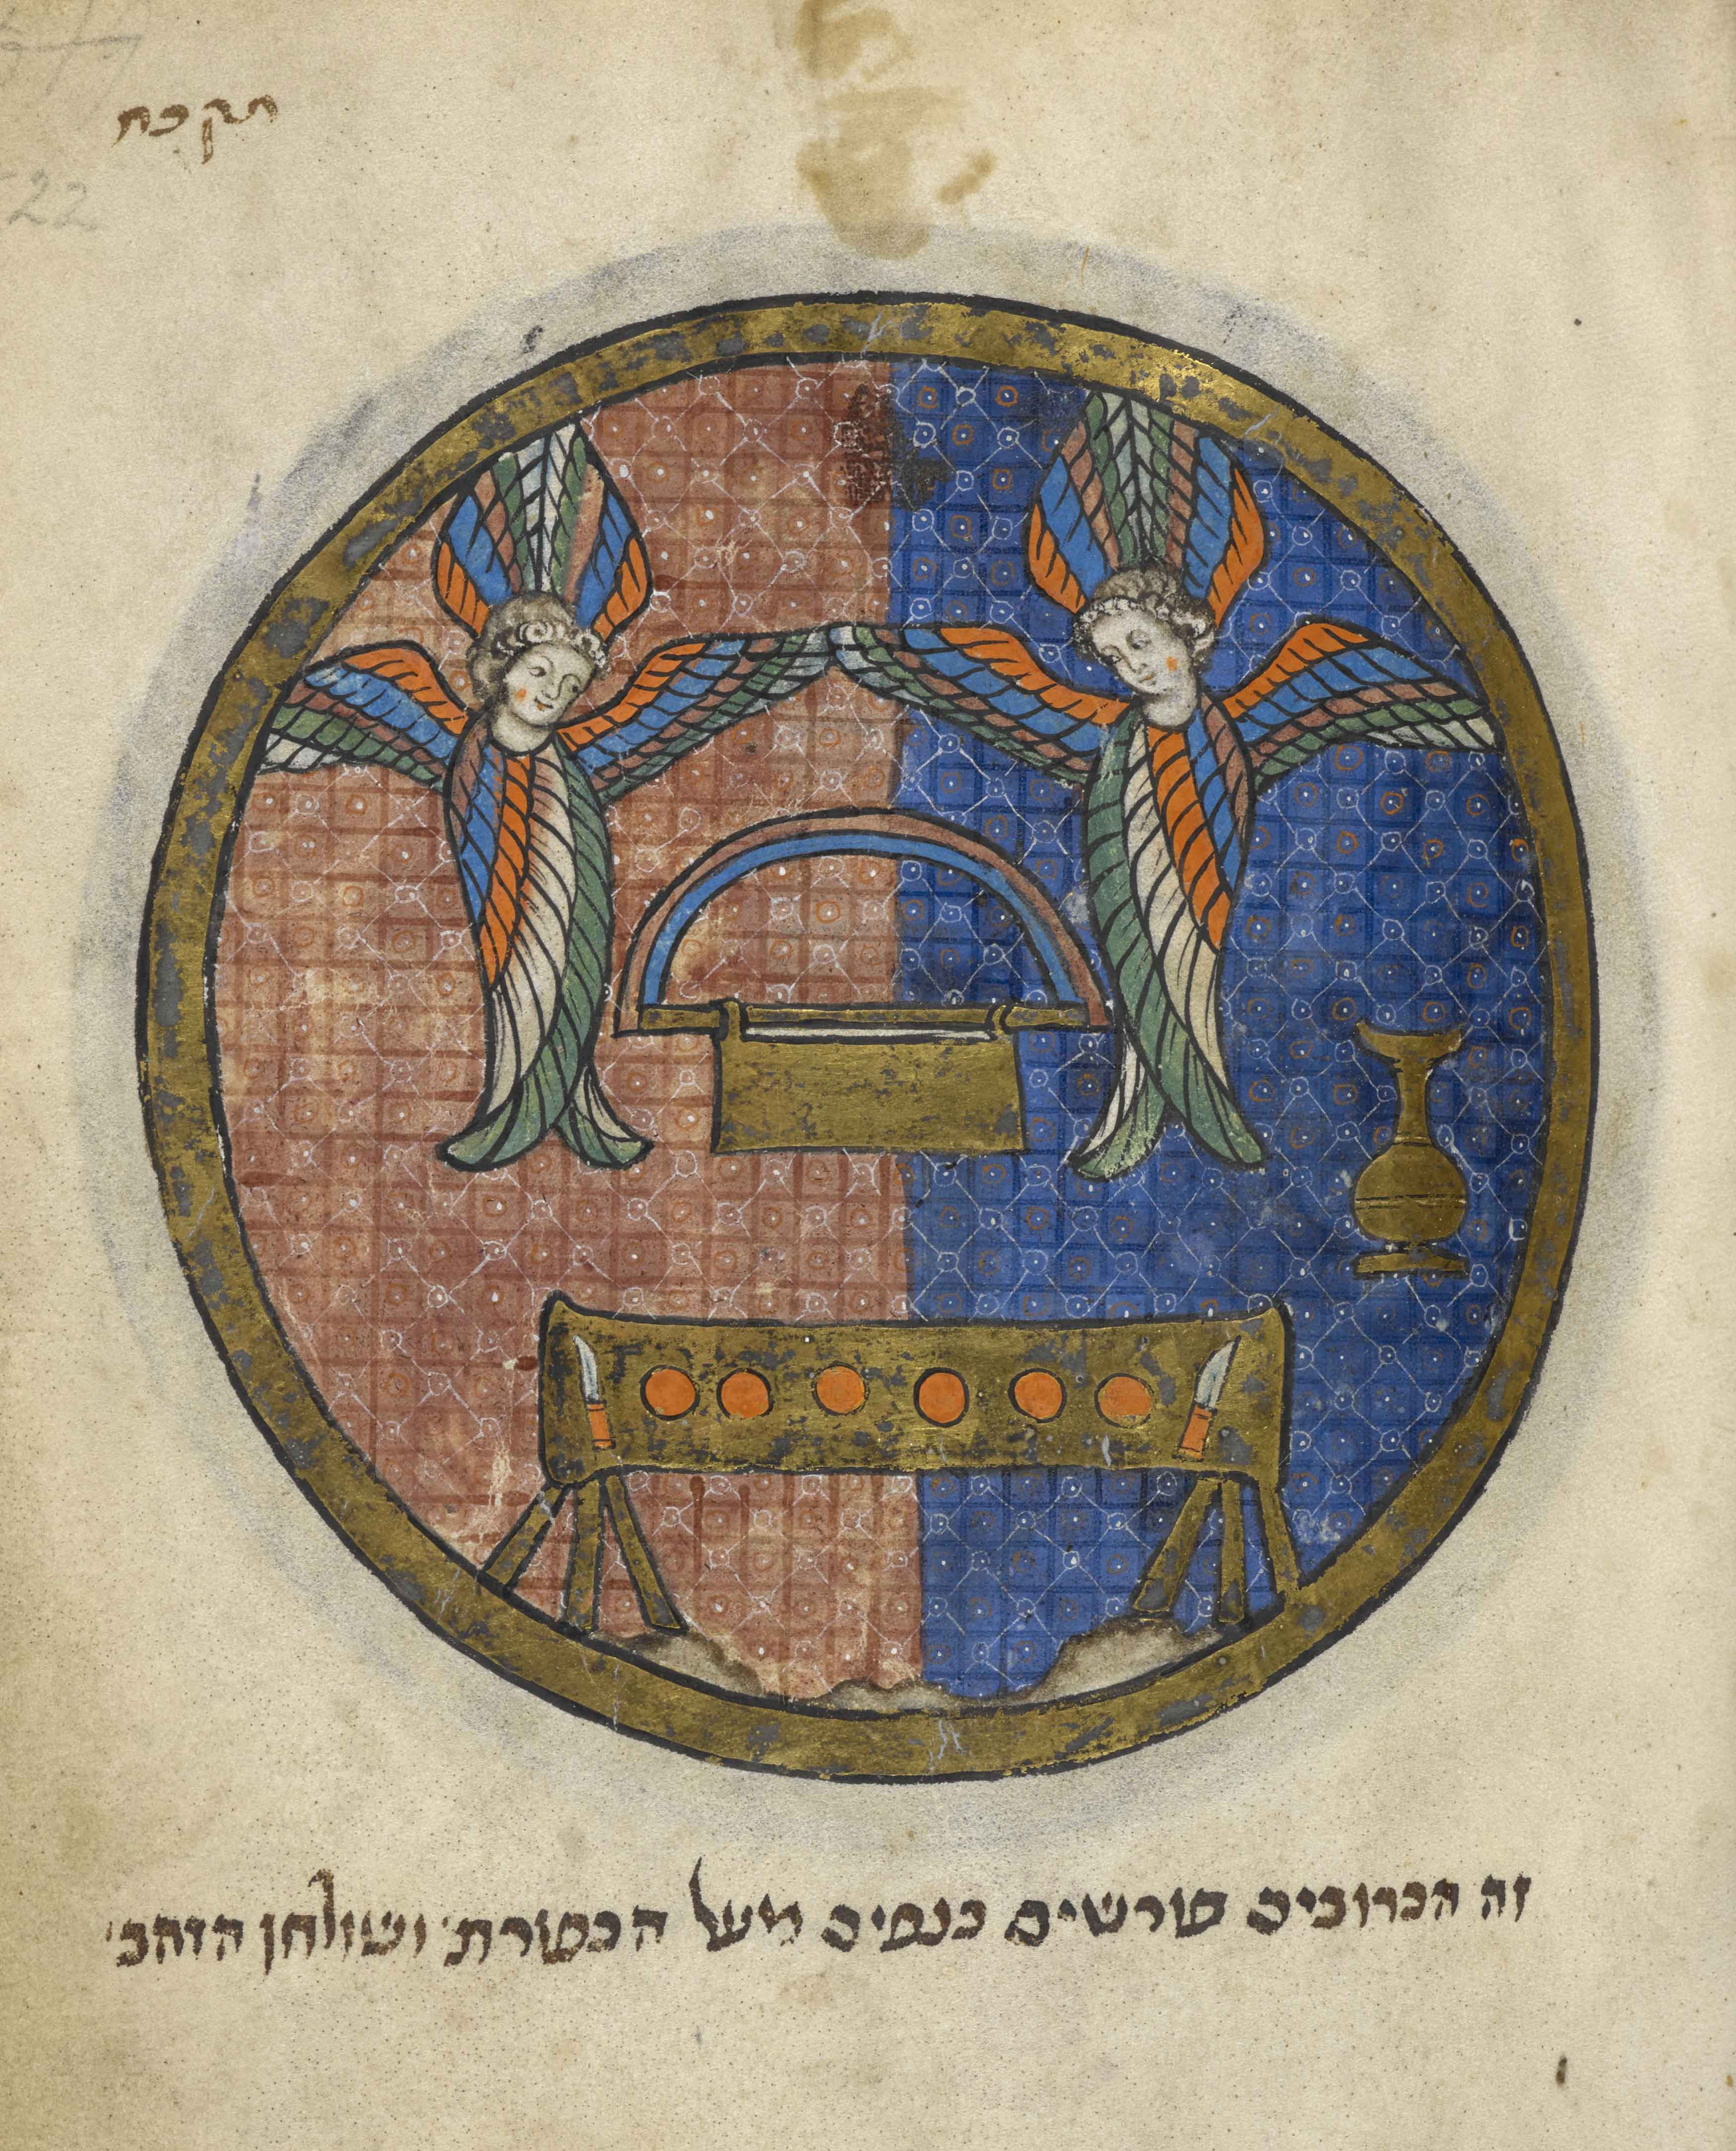 תקכח
522
זה הכרובים פורשים כנפים מעל הכפורת' ושולחן הזהב'